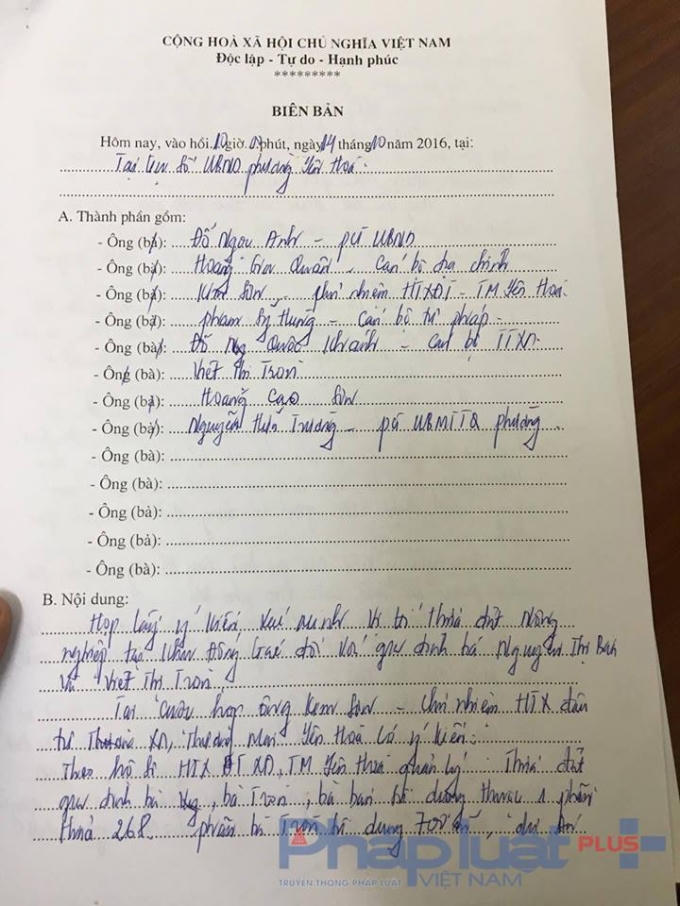 CỘNG HOÀ XÃ HỘI CHỦ NGHĨA VIỆT NAM
Độc lập - Tự do - Hạnh phúc
*********
BIÊN BẢN
Hôm nay, vào hồi 10 giờ 0 phút, ngày 14 tháng 10 năm 2016, tại:
Tại trụ sở UBND phường Yên Hoà.
A. Thành phần gồm:
- Ông (bà): Đỗ Ngọc Anh - PCT UBND
- Ông (bà): Hoàng Quân - Cán bộ địa chính
- Ông (bà): Kim Sơn, chủ nhiệm HTX ĐT - TM Yên Hoà.
- Ông (bà): Phạm Sỹ Hùng - Cán bộ tư pháp.
- Ông (bà): Đỗ Quốc Khánh - Cán bộ TTXD.
- Ông (bà): Viết Thị Tròn
- Ông (bà): Hoàng Cao Sơn
- Ông (bà): Nguyễn Trường - PCT UBMTTQ phường.
- Ông (bà):
- Ông (bà):
- Ông (bà):
- Ông (bà):
- Ông (bà):
B. Nội dung:
Họp lấy ý kiến xác minh vị trí thửa đất nông
nghiệp tại khu Đồng đối với gia đình bà Nguyễn Thị
và Viết Thị Tròn.
Tại cuộc họp ông Kim Sơn - chủ nhiệm HTX đầu
tư XD, Thương Mại Yên Hoà có ý kiến:
Theo hồ sơ HTX ĐT XD, TM Yên Hoà quản lý: Thửa đất
gia đình bà, bà Tròn, bà thuộc 1 phần
thửa 268. phần bà Tròn sử dụng
Pháp luật PLUS+
VIỆT NAM
TRUYỀN THÔNG PHÁP LUẬT